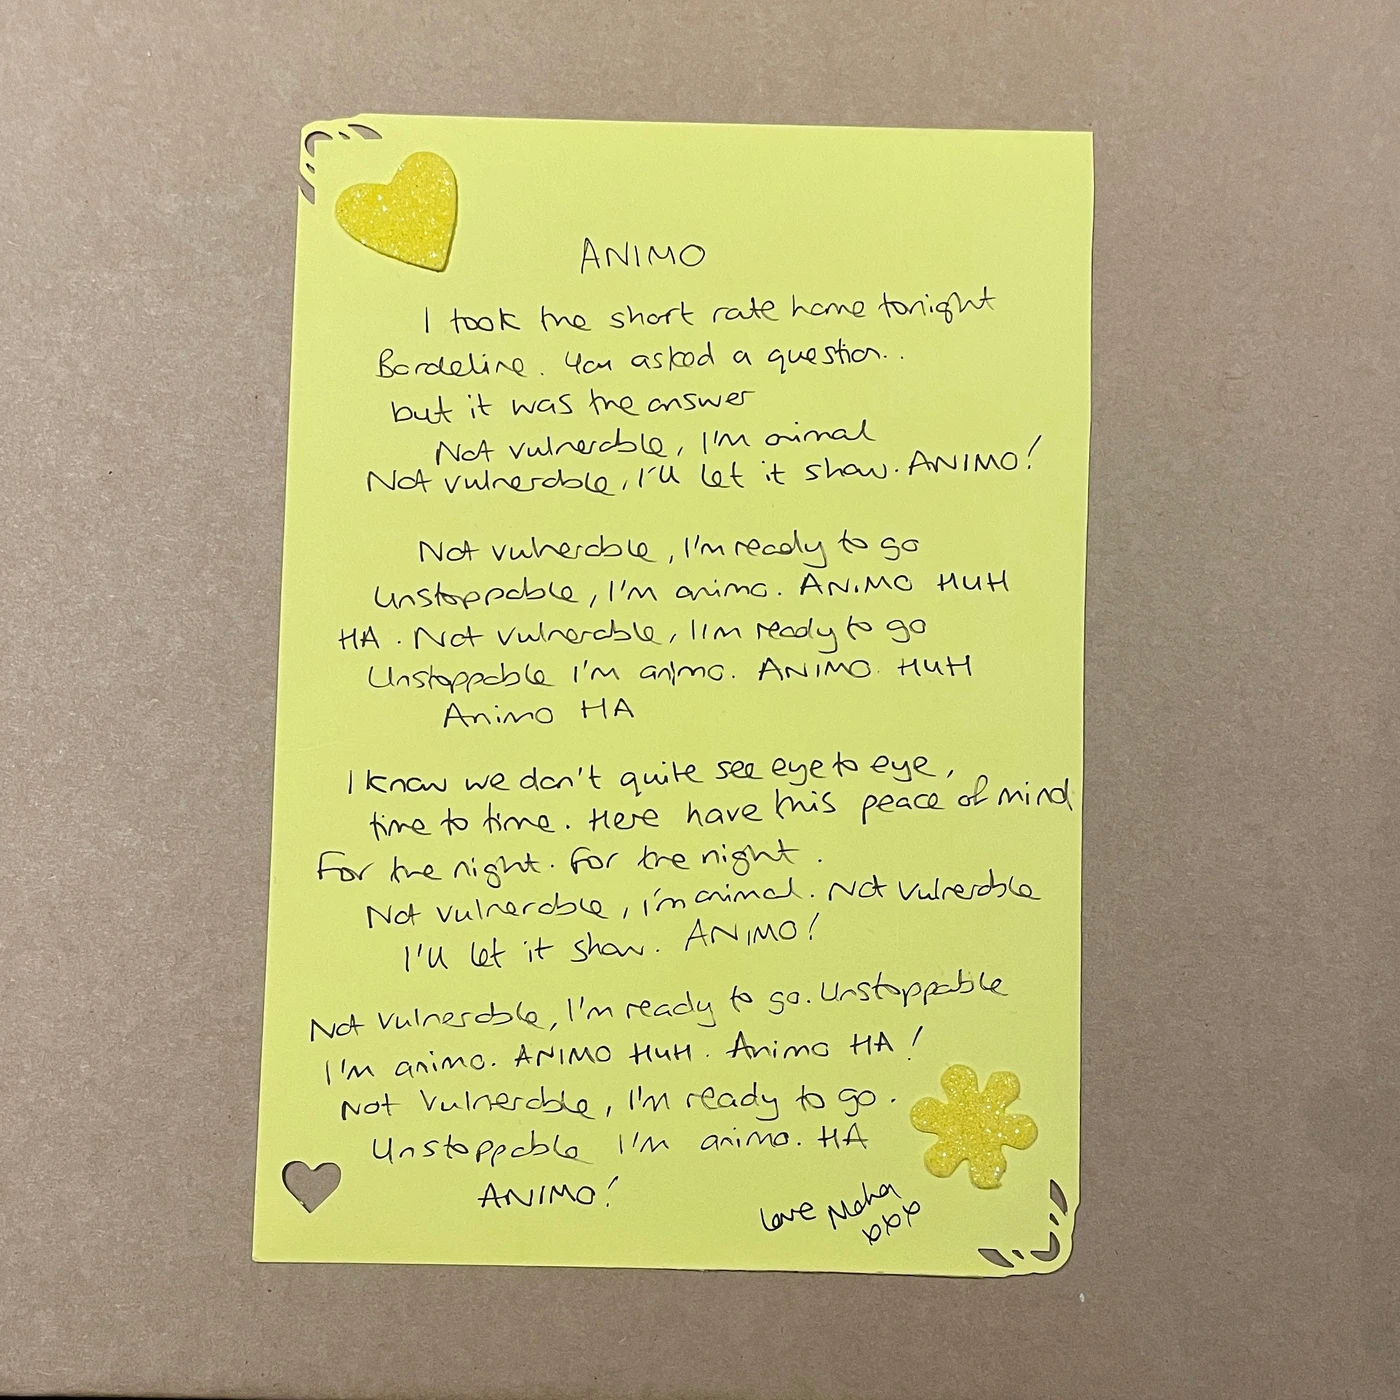 ANIMO
I took the short rate home tonight
Bordeline. You asked a question..
but it was the answer
Not vulnerable, I'm animal
Not vulnerable, I'll let it show. ANIMO!
Not vulnerable, I'm ready to go
Unstoppable, I'm animo. ANIMO HUH
HA. Not vulnerable, I'm ready to go
Unstoppable I'm animo. ANIMO. HUH
Animo HA
I know we don't quite see eye to eye,
time to time. Here have this peace of mind
For the night. For the night.
Not vulnerable, i'm animal. Not vulnerable
I'll let it show. ANIMO!
Not vulnerable, I'm ready to go. Unstoppable
I'm animo. ANIMO HUH. Animo HA!
Not vulnerable, I'm ready to go.
Unstoppable I'm animo. HA
ANIMO!
love Maha
xxx